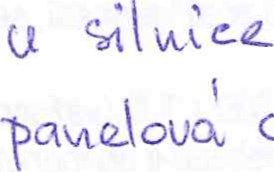 u silnice
panelová c